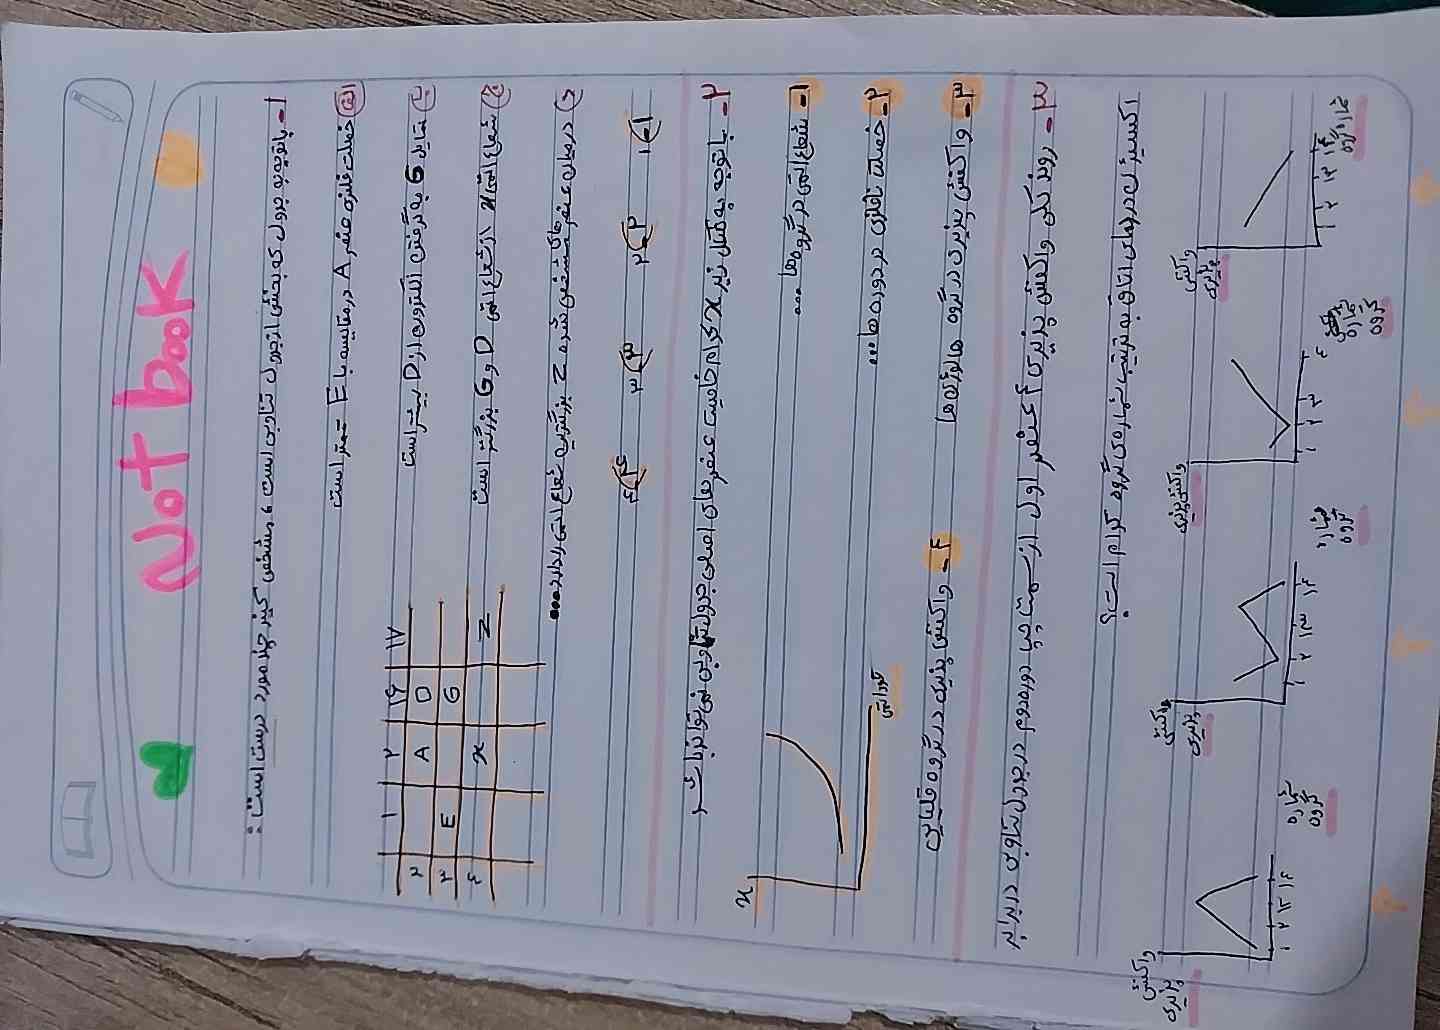 Not book
۱- باتوجه به جدول که بخشی از جدول تناوبی است، مشخص کنید چند مورد درست است:
الف) خصلت فلزی عنصر A در مقایسه با E کمتر است
ب) تمایل G به گرفتن الکترون از D بیشتر است
ج) شعاع اتمی x از شعاع اتمی D و G بزرگتر است
د) درمیان عنصرهای مشخص شده Z بزرگترین شعاع اتمی را دارد...
۱ ۲ ۱۶ ۱۷
۲ A D
۳ E G
۴ x Z
۱) ۱ ۲) ۲ ۳) ۳ ۴) ۴
۲- باتوجه به شکل زیر x کدام خاصیت عنصرهای اصلی جدول تناوبی نمی تواند باشد
۱- شعاع اتمی در گروه ها ...
۲- خصلت نافلزی در دوره ها ...
۳- واکنش پذیری در گروه هالوژن ها
۴- واکنش پذیری در گروه قلیایی
x
عدد اتمی
۳- روند کلی واکنش پذیری ۴ عنصر اول از سمت چپ دوره دوم جدول تناوبی در برابر
اکسیژن در دمای اتاق به ترتیب شماره ی گروه کدام است؟
واکنش پذیری
۱ ۲ ۱۳ ۱۴
شماره گروه
واکنش پذیری
شماره گروه
واکنش پذیری
۱ ۲ ۱۳ ۱۴
شماره گروه
واکنش پذیری
۱ ۲ ۱۳ ۱۴
شماره گروه